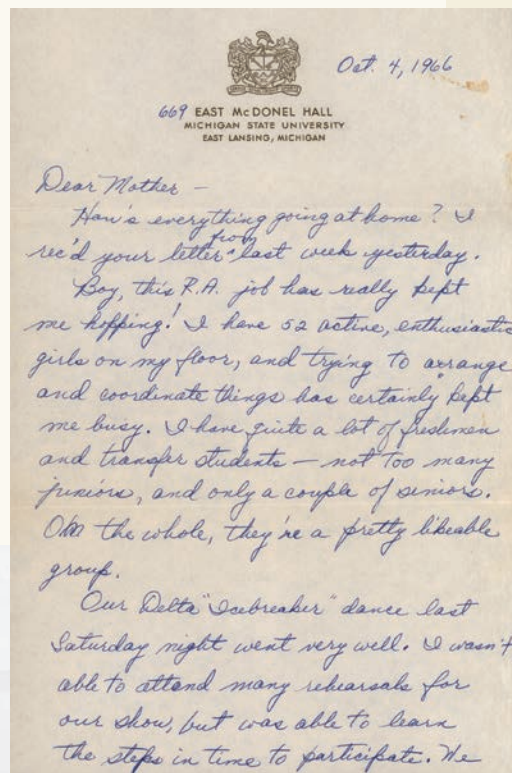 Oct. 4, 1966
669 EAST McDONEL HALL
MICHIGAN STATE UNIVERSITY
EAST LANSING, MICHIGAN
Dear Mother –
How's everything going at home? I
rec'd your letter from last week yesterday.
Boy, this R.A. job has really kept
me hopping! I have 52 active, enthusiastic
girls on my floor, and trying to arrange
and coordinate things has certainly kept
me busy. I have quite a lot of freshmen
and transfer students – not too many
juniors, and only a couple of seniors.
On the whole, they're a pretty likeable
group.
Our Delta "Icebreaker" dance last
Saturday night went very well. I wasn't
able to attend many rehearsals for
our show, but was able to learn
the steps in time to participate. We